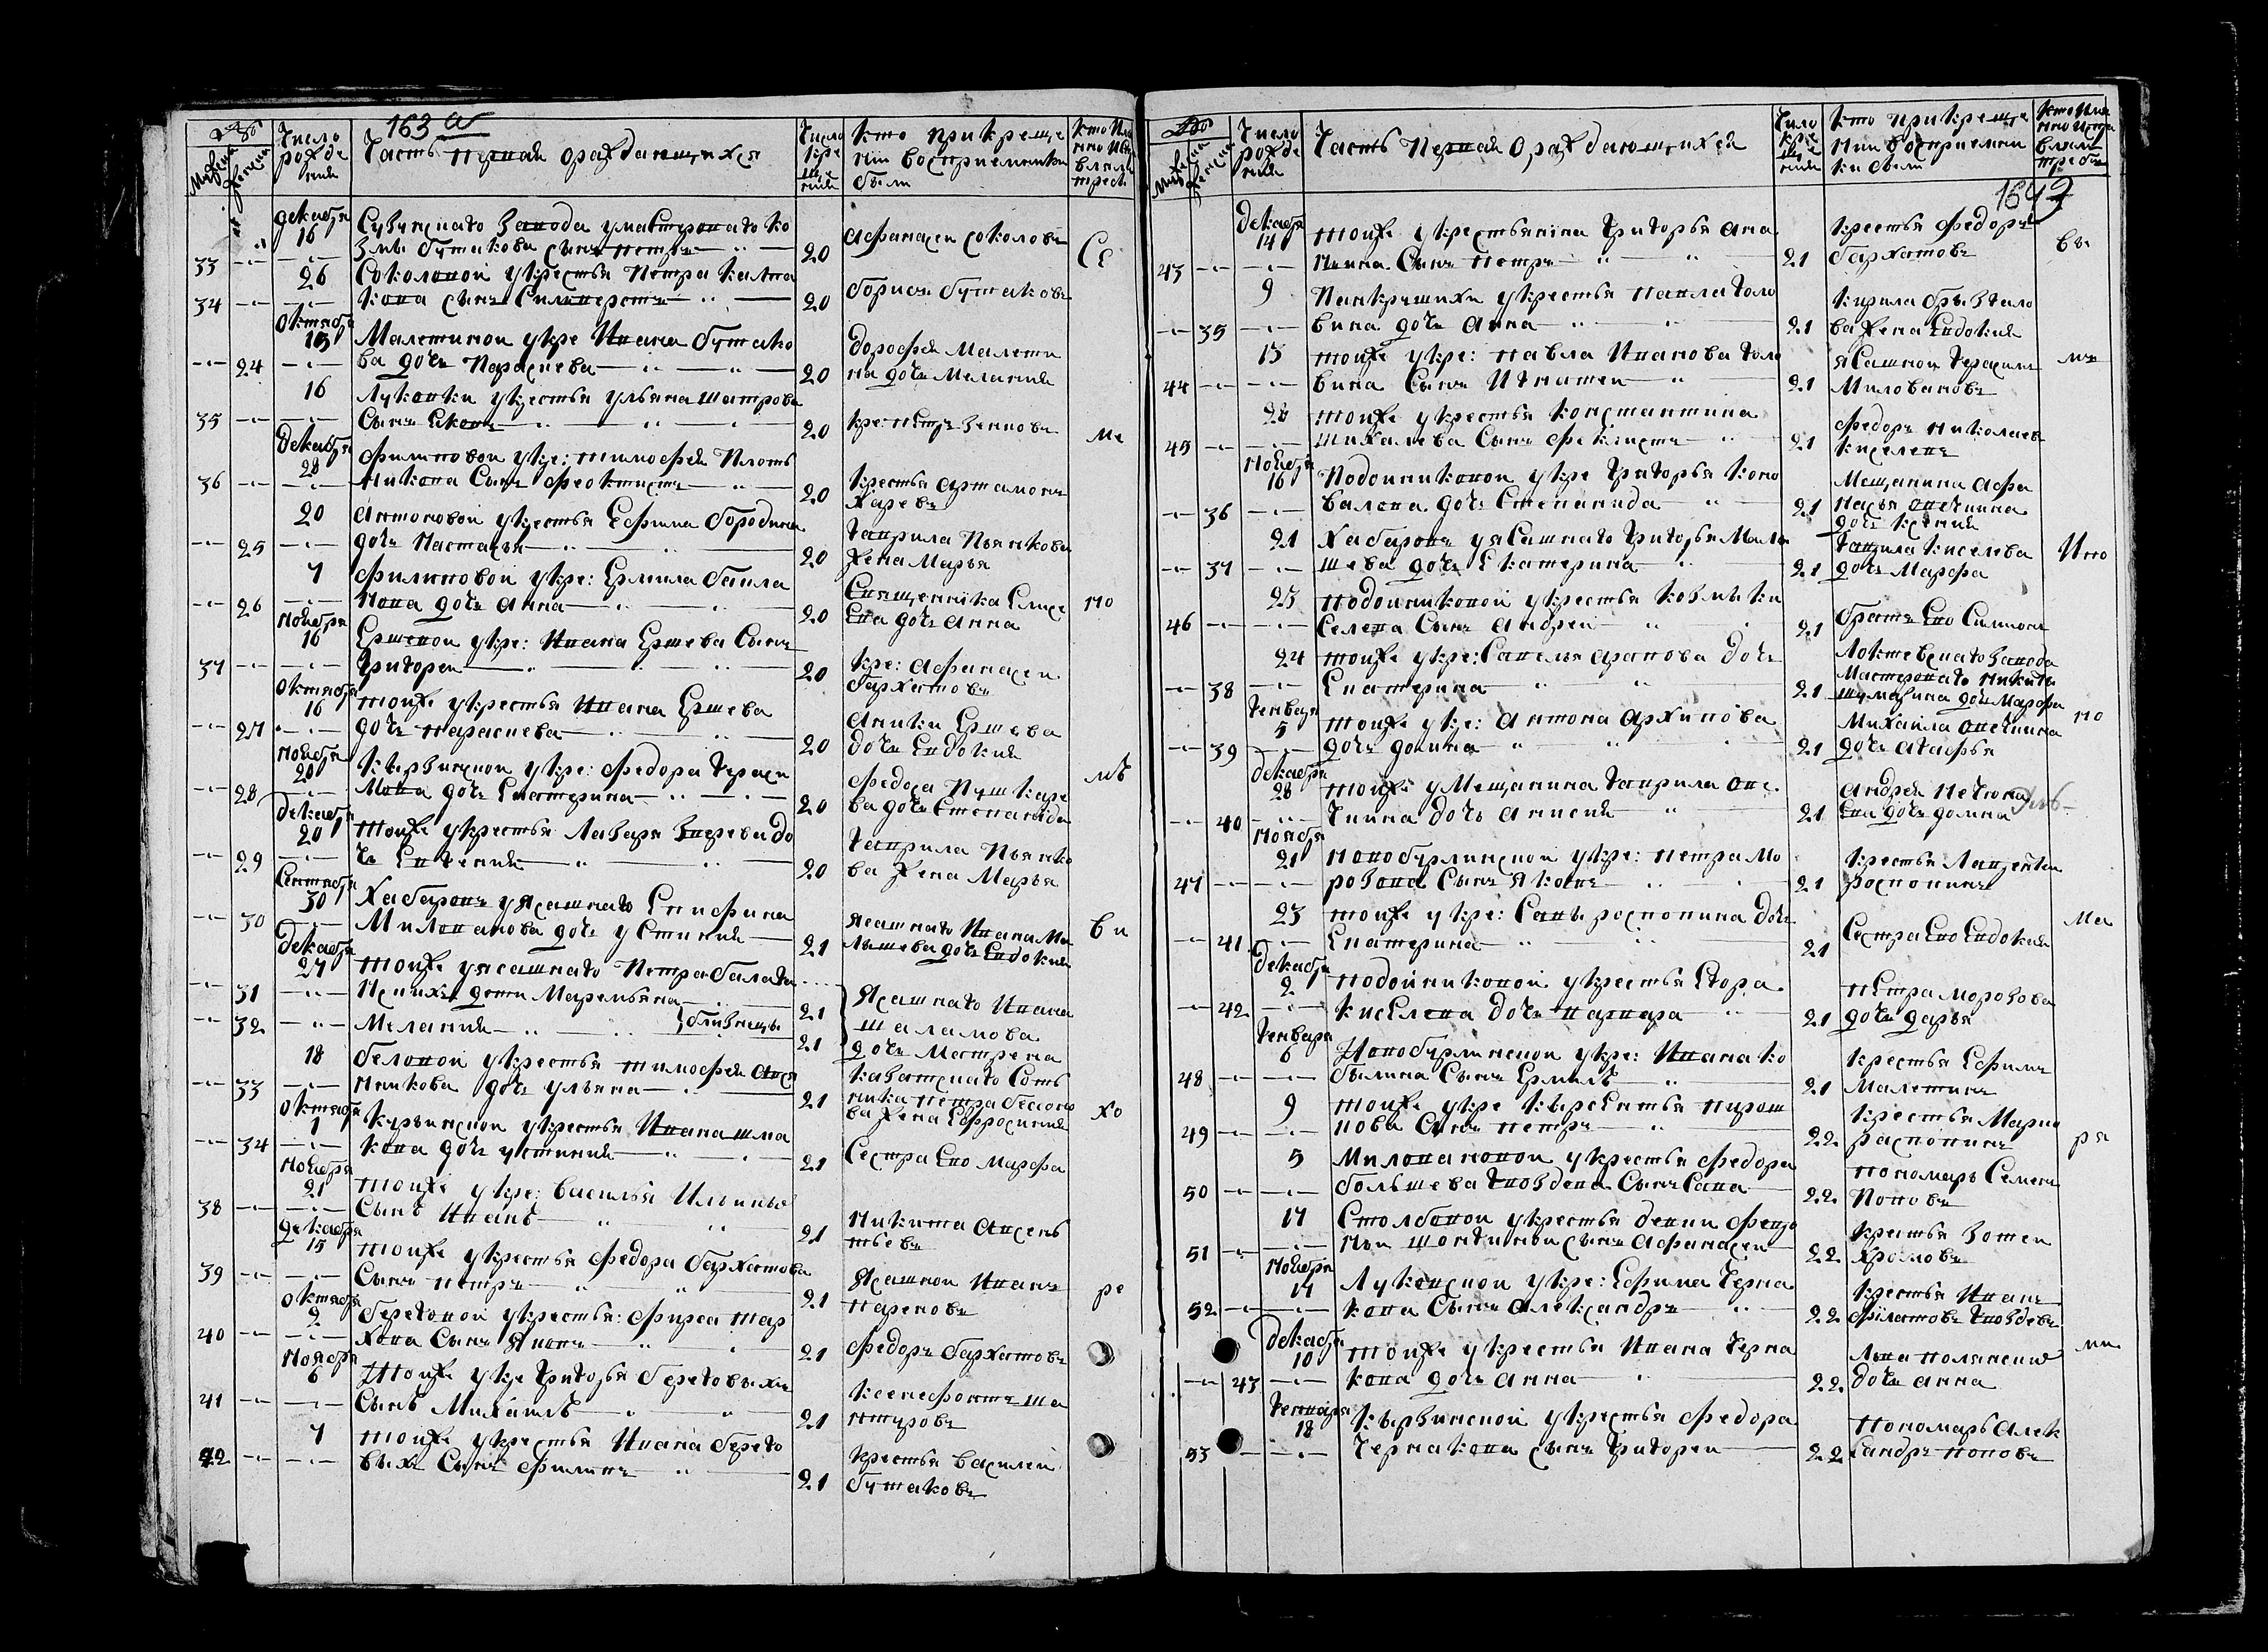 163 а
Число рожде ния
Часть первая о раждающихся
Число кре ще ния
кто при креще
нии восприемники
были
декабря
16
Сузунскаго завода у мастероваго ко
змы бутакова сынъ петръ
33
20
афанасеи соколовъ
26
Соколовой у крестья петра калма
34
кова сынъ Силиверстъ
20
борисъ бутаковъ
октября
Малетиной у кре Ивана бутако
24
ва дочь Параскева
20
дорофея Малети
на дочь Мелания
16
Луковки у крестья ульяна шатрова
35
Сынъ Яковъ
20
кре: петръ зенковъ
декабря
28
филиповой у кре: тимофея Плот
36
никова Сынъ феоктистъ
20
крестья артамонъ
Харевъ
20
антоновой у крестья Ефима бородина
25
дочь настасья
20
гаврила Пьянкова
жена Марья
7
филиповой у кре: Ермила баила
26
кова дочь анна
20
Священника Елисе
ева дочь анна
но
ноября
16
Ершевой у кре: Ивана Ершева Сынъ
37
григореи
20
кре: афанасеи
бархатовъ
октября
16
тоиже у крестья Ивана Ершева
27
дочь параскева
20
аники Ершева
дочь Евдокия
ноября
20
кырзинской у кре: федора гераси
28
мова дочь Екатерина
20
федора Пушкаре
ва дочь Степанида
декабря
20
тоиже у крестья Лазаря зырева до
29
чь Евгения
20
гаврила Пьянко
ва жена Марья
Сентября
30
Хабаровъ у ясашнаго Епифана
30
Милованова дочь устиния
21
ясашнаго Ивана Ма
лышева дочь Евдокия
декабря
27
тоиже у ясашнаго Петра балага
31
нскихъ дочи Маремьяна
21
32
Мелания
близнецы
21
Ясашнаго Ивана
шаламова
дочь Матрена
18
беловой у крестья тимофея овся
33
никова дочь ульяна
21
казатскаго Сот
ника петра бессоно
ва жена Ефросиния
хо
октября
1
кырзинской у крестья Ивана шма
34
кова дочь устиния
21
Сестра Его Марфа
ноября
21
тоиже у кре: василья Ильины
38
Сынъ Иванъ
21
никита авсень
тьевъ
декабря
15
тоиже у крестья федора бархатова
39
Сынъ петръ
21
Ясашнои Иванъ
пареновъ
ре
октября
2
береговой у крестья: фирса тар
40
хова Сынъ Яковъ
21
федоръ бархатовъ
ноября
6
тоиже у кре григорья береговыхъ
41
Сынъ Михаилъ
21
ксенефонтъ ша
нтуровъ
7
тоиже у крестья Ивана берего
42
выхъ Сынъ филипъ
21
крестья василеи
бутаковъ
Число рожде ния
Часть Первая о раждающихся
Число кре ще ния
кто при креще
нии восприемни
ки были
164
декабря
14
тоиже у крестьянина григорья ана
43
ньина Сынъ петръ
21
крестья федоръ
бархатовъ
въ
9
Панкрушихи у крестья павла голо
35
вина дочь анна
21
кирила брызгало
ва жена Евдокия
15
тоиже у кре: павла Иванова голо
44
вина Сынъ Игнатеи
21
ясашнои герасимъ
Миловановъ
28
тоиже у крестья константина
45
Михалева Сынъ феклистъ
21
федоръ николаевъ
киселевъ
ноября
16
Подоиниковой у кре григорья коно
36
валова дочь Степанида
21
Мещанина афа
насья овечкина
дочь ксения
21
Хабаровъ у ясашнаго григорья Малы
37
шева дочь Екатерина
21
гаврила киселева
дочь Марфа
23
подоиниковой у крестья козмы ки
46
селева Сынъ андреи
21
братъ Его Симионъ
24
тоиже у кре: Савелья арапова дочь
38
Екатерина
21
Локтевскаго завода
Мастероваго никиты
шумагина дочь Марфа
но
генваря
5
тоиже у кре: антона архипова
39
дочь домна
21
Михаила овечкина
дочь агафья
декабря
28
тоиже у Мещанина гаврила ове
40
чкина дочь анисия
21
андрея
ева дочь домна
ноября
21
новобурлинской у кре: петра Мо
47
розова Сынъ Яковъ
21
крестья Лаврентеи
распопинъ
23
тоиже у кре: Савы роспопина дочь
41
Екатерина
21
Сестра Ево Евдокия
декабря
2
подоиниковой у крестья Егора
42
киселева дочь варвара
21
петра Морозова
дочь дарья
генваря
6
Новобурлинской у кре: Ивана ко
48
былина Сынъ Ермилъ
21
крестья Ефимъ
Малетинъ
9
тоиже у кре кырсентья пирож
49
кова Сынъ петръ
22
крестья Марко
распопинъ
5
Миловановой у крестья федора
50
большева гвоздева Сынъ Сава
22
пономарь Семенъ
Поповъ
17
Столбовой у крестья
51
Сынъ афанасеи
22
крестья зотеи
хромовъ
ноября
17
Луковской у кре: Ефима черна
52
кова Сынъ александръ
22
крестья Иванъ
филатовъ гвоздевъ
декабря
10
тоиже у крестья Ивана черна
43
кова дочь анна
22
дочь анна
генваря
18
кырзинской у крестья федора
53
чернакова сынъ григореи
22
пономарь алек
сандръ поповъ